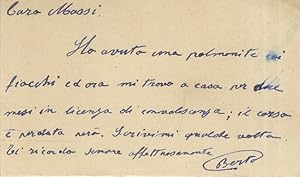 Caro Massi.
Ho avuto una polmonite coi
fiocchi ed ora mi trovo a casa per due
mesi in licenza di convalescenza; il corso
è perduto però. Scrivimi qualche volta.
Ti ricordo sempre affettuosamente
Berto